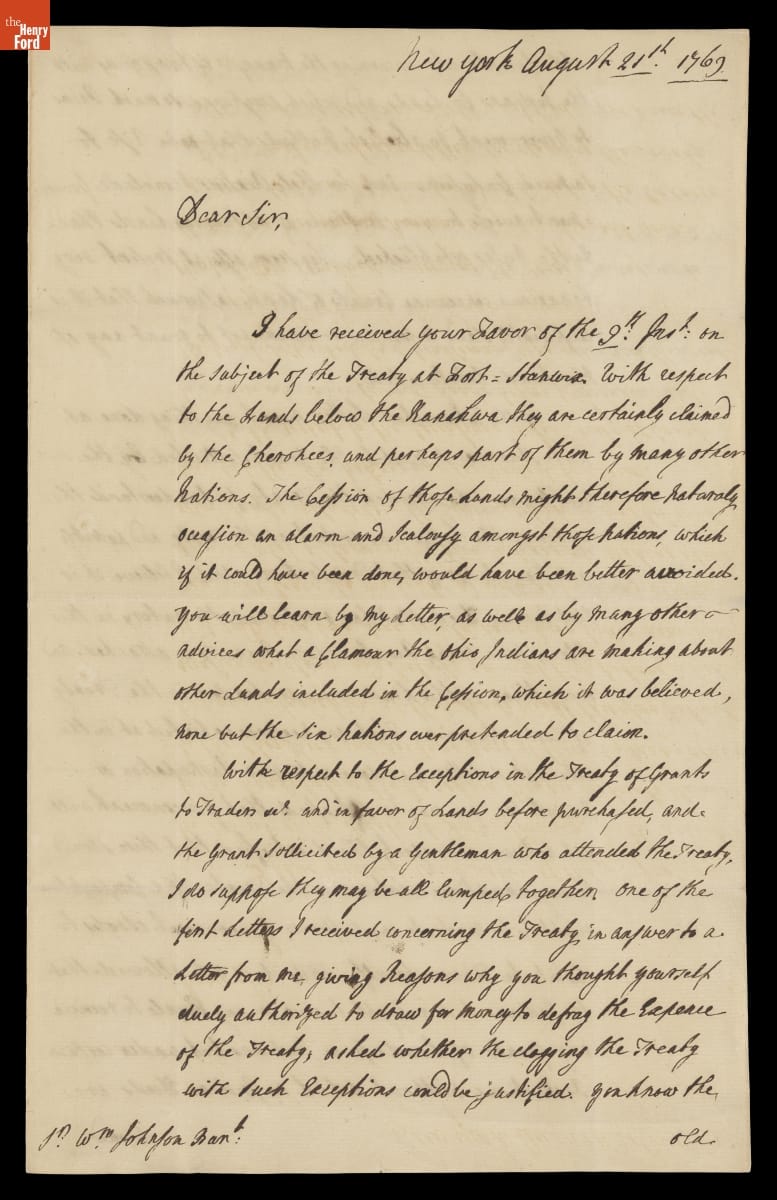 the
Henry
Ford
New York August 21st. 1769.
Dear Sir,
I have received your Favor of the 9th. Inst: on
the subject of the Treaty at Fort=Stanwix. With respect
to the Lands below the Kanahwa they are certainly claimed
by the Cherokees, and perhaps part of them by many other
Nations. The Cession of those Lands might therefore naturaly
occasion an alarm and Jealousy amongst those Nations, which
if it could have been done, would have been better avoided.
You will learn by my Letter, as well as by many other
advices what a Clamour the Ohio Indians are making about
other Lands included in the Cession, which it was believed,
none but the Six Nations ever pretended to claim.
With respect to the Exceptions in the Treaty of Grants
to Traders &c. and in favor of Lands before purchased, and
the Grant sollicited by a Gentleman who attended the Treaty,
I do suppose they may be all lumped together. One of the
first Letters I received concerning the Treaty, in answer to a
Letter from me, giving Reasons why you thought yourself
duely authorized to draw for money to defray the Expence
of the Treaty, asked whether the clogging the Treaty
with such Exceptions could be justified. You know the
Sr. Wm. Johnson Bart.
old